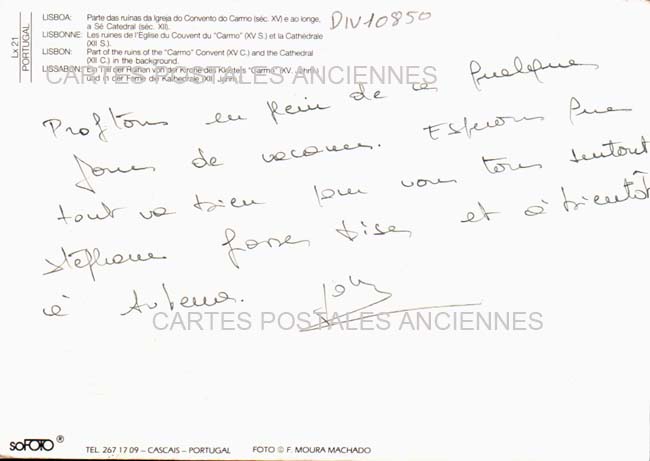 Lx 21
PORTUGAL
LISBOA: Parte das ruinas da Igreja do Convento do Carmo (séc. XV) e ao longe,
a Sé Catedral (séc. XII).
LISBONNE: Les ruines de l'Église du Couvent du "Carmo" (XV S.) et la Cathédrale
(XII S.).
LISBON: Part of the ruins of the "Carmo" Convent (XV C.) and the Cathedral
(XII C.) in the background.
LISSABON: Ein Teil der Ruinen von der Kirche des Klosters "Carmo" (XV. Jahrh.)
und in der Ferne die Kathedrale (XII. Jahrh.)
DIV10850
CARTES POSTALES ANCIENNES
Profitons en plein de ces quelques
jours de vacances. Espérons que
tout va bien pour vous tous surtout
Stéphane Grosses bises et à bientôt
à
CARTES POSTALES ANCIENNES
soFOTO ®
TEL. 267 17 09 – CASCAIS – PORTUGAL FOTO © F. MOURA MACHADO